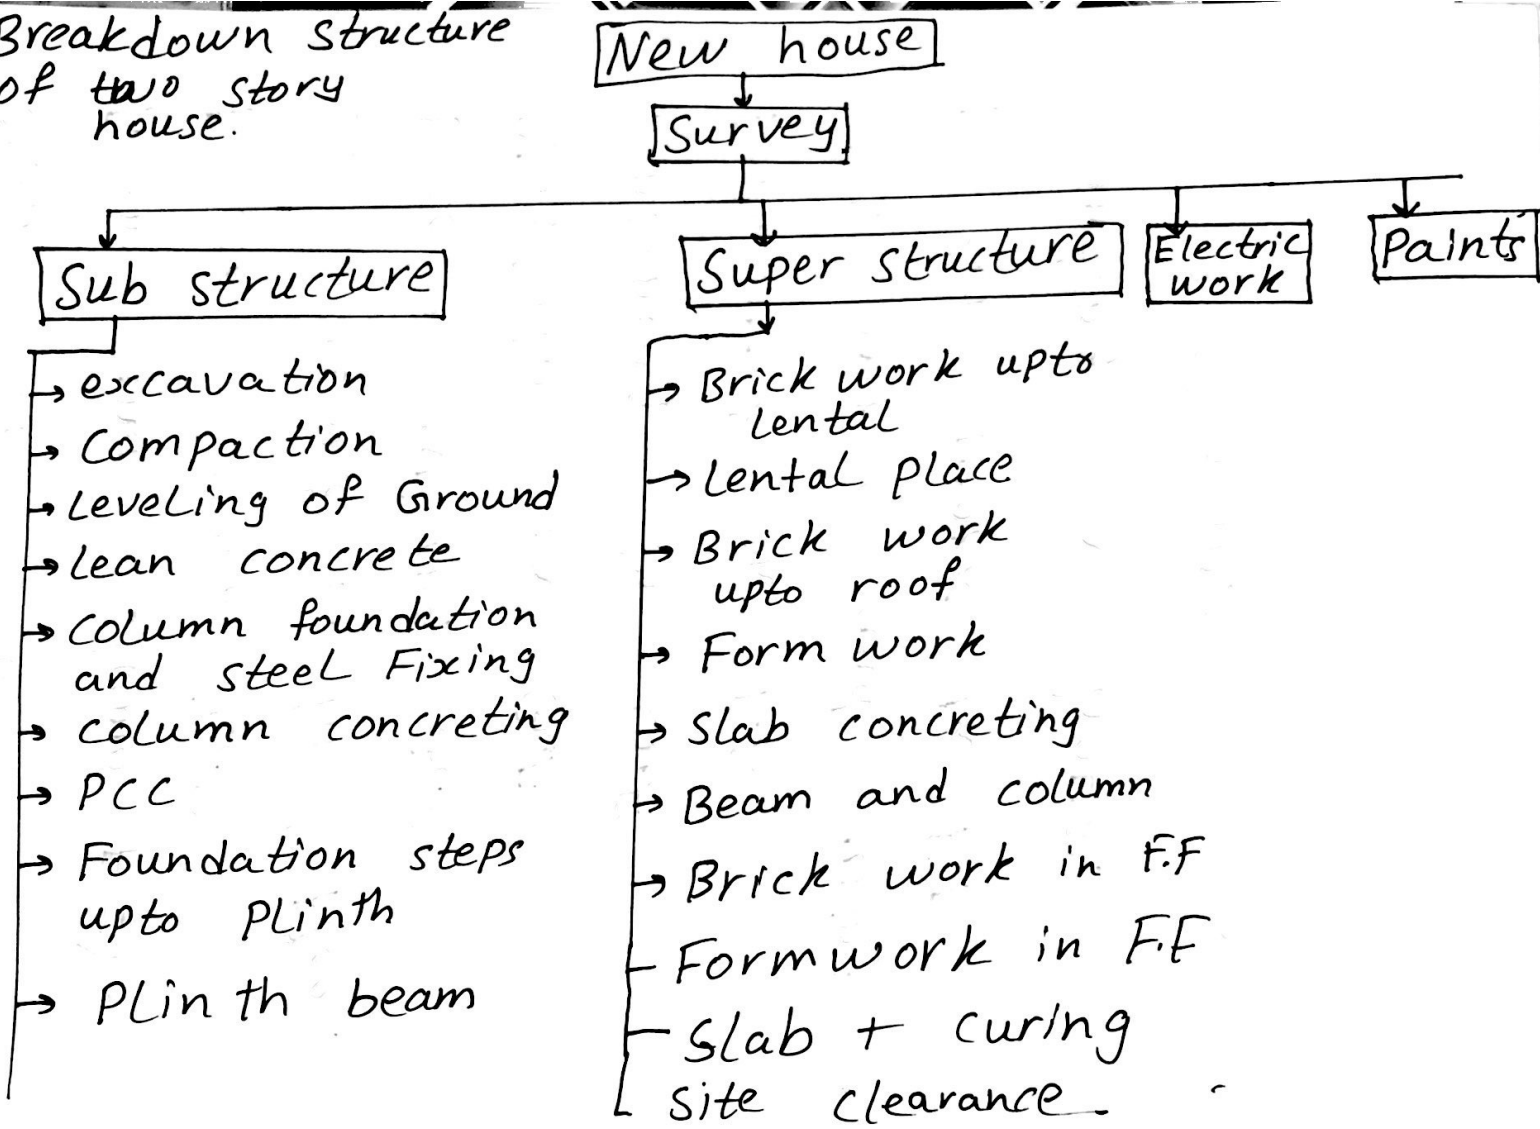 Breakdown structure
of two story
house.
New house
Survey
Sub structure
Super structure
Electric
work
Paints
excavation
Compaction
Leveling of Ground
Lean concrete
Column foundation
and steel Fixing
column concreting
PCC
Foundation steps
upto Plinth
Plinth beam
Brick work upto
Lental
Lental place
Brick work
upto roof
Form work
Slab concreting
Beam and column
Brick work in F.F
Formwork in F.F
Slab + curing
Site clearance.